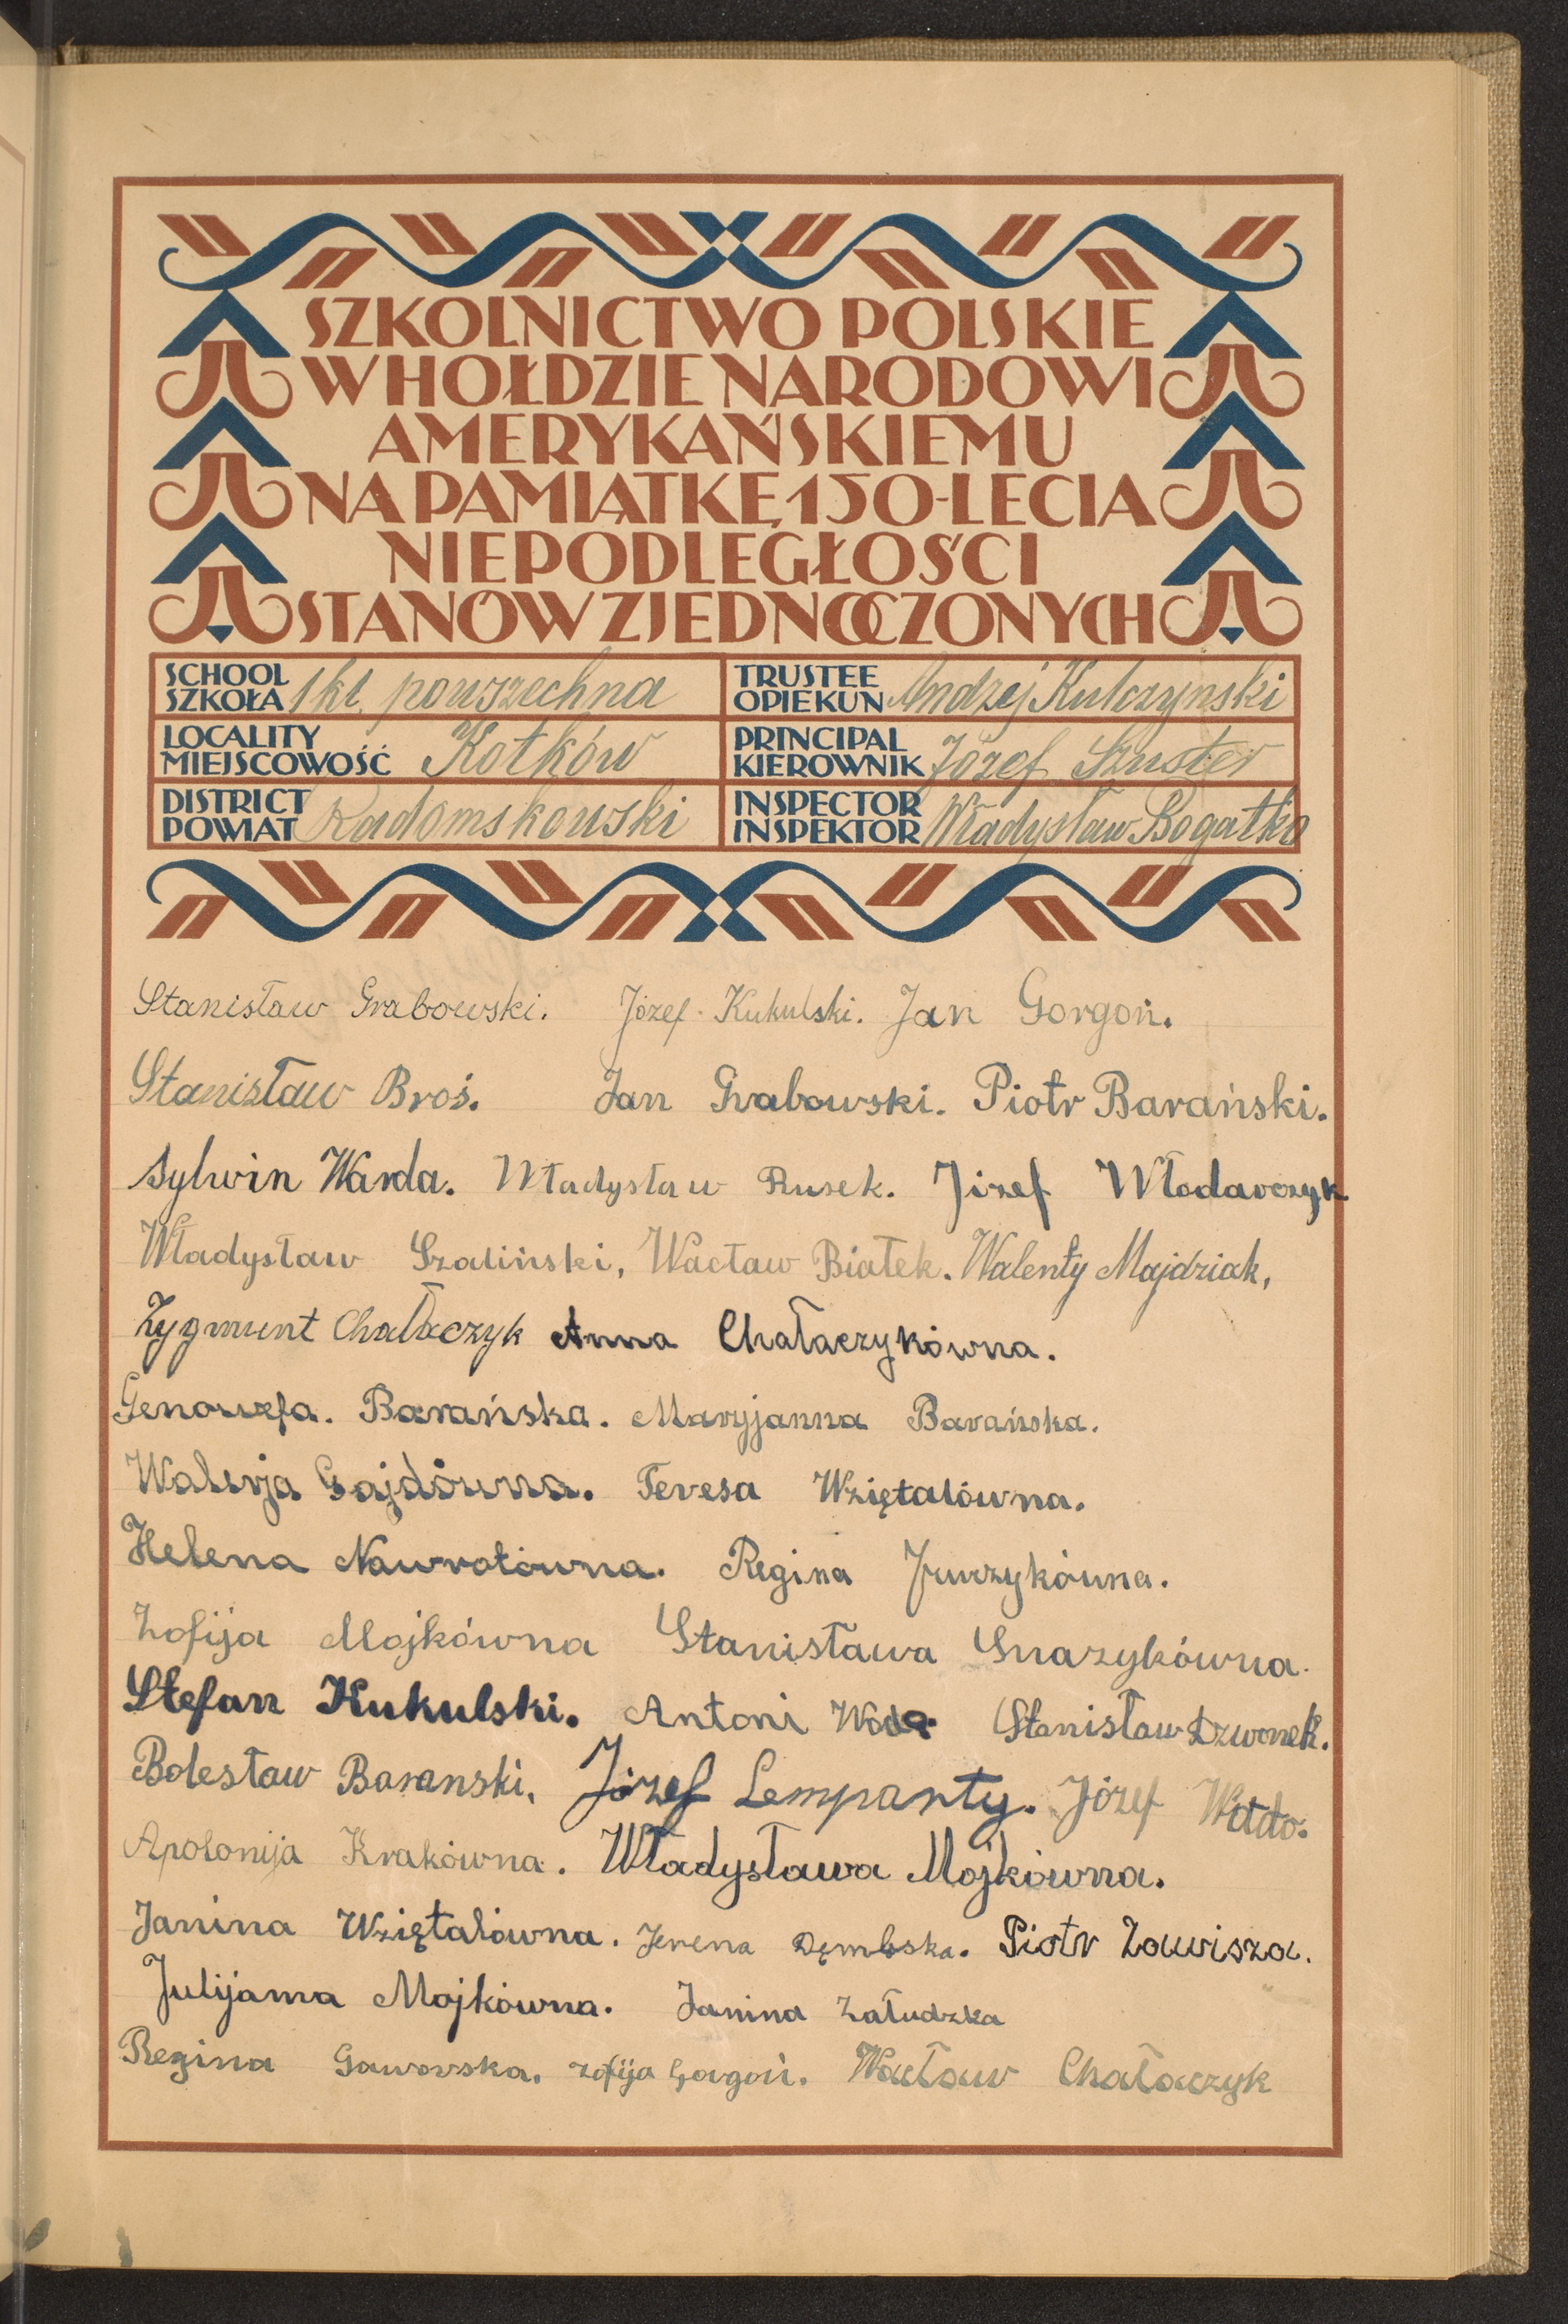 SZKOLNICTWO POLSKIE
W HOŁDZIE NARODOWI
AMERYKAŃSKIEMU
NA PAMIĄTKĘ 150-LECIA
NIEPODLEGŁOŚCI
STANÓW ZJEDNOCZONYCH
SCHOOL SZKOŁA 1 kl. powszechna
TRUSTEE OPIEKUN Andrzej Kulczynski
LOCALITY MIEJSCOWOŚĆ Kotków
PRINCIPAL KIEROWNIK Józef Szuster
DISTRICT POWIAT Radomskowski
INSPECTOR INSPEKTOR Władysław Bogatko
Stanisław Grabowski. Józef Kukulski. Jan Gorgoń.
Stanisław Broś. Jan Grabowski. Piotr Barański.
Sylwin Warda. Władysław Rusek. Józef Włodarczyk
Władysław Szaliński, Wacław Białek. Walenty Majdziak,
Zygmunt Chałaczyk Anna Chałaczykówna.
Genowefa. Barańska. Maryjanna Barańska.
Walerja Gajdówna. Teresa Wziętalówna.
Helena Nawrotówna. Regina Jurczykówna.
Zofija Mojkówna Stanisława Snazykówna.
Stefan Kukulski. Antoni Woda. Stanisław Dzwonek.
Bolesław Baranski. Józef Lempanty. Józef
Apolonija Krakówna. Władysława Mojkówna.
Janina Wziętalówna. Jrena Dęmbska. Piotr Zawisza.
Julijanna Mojkówna. Janina Załudzka
Regina Gaworska. Zofija Gorgoń. Wacław Chałaczyk